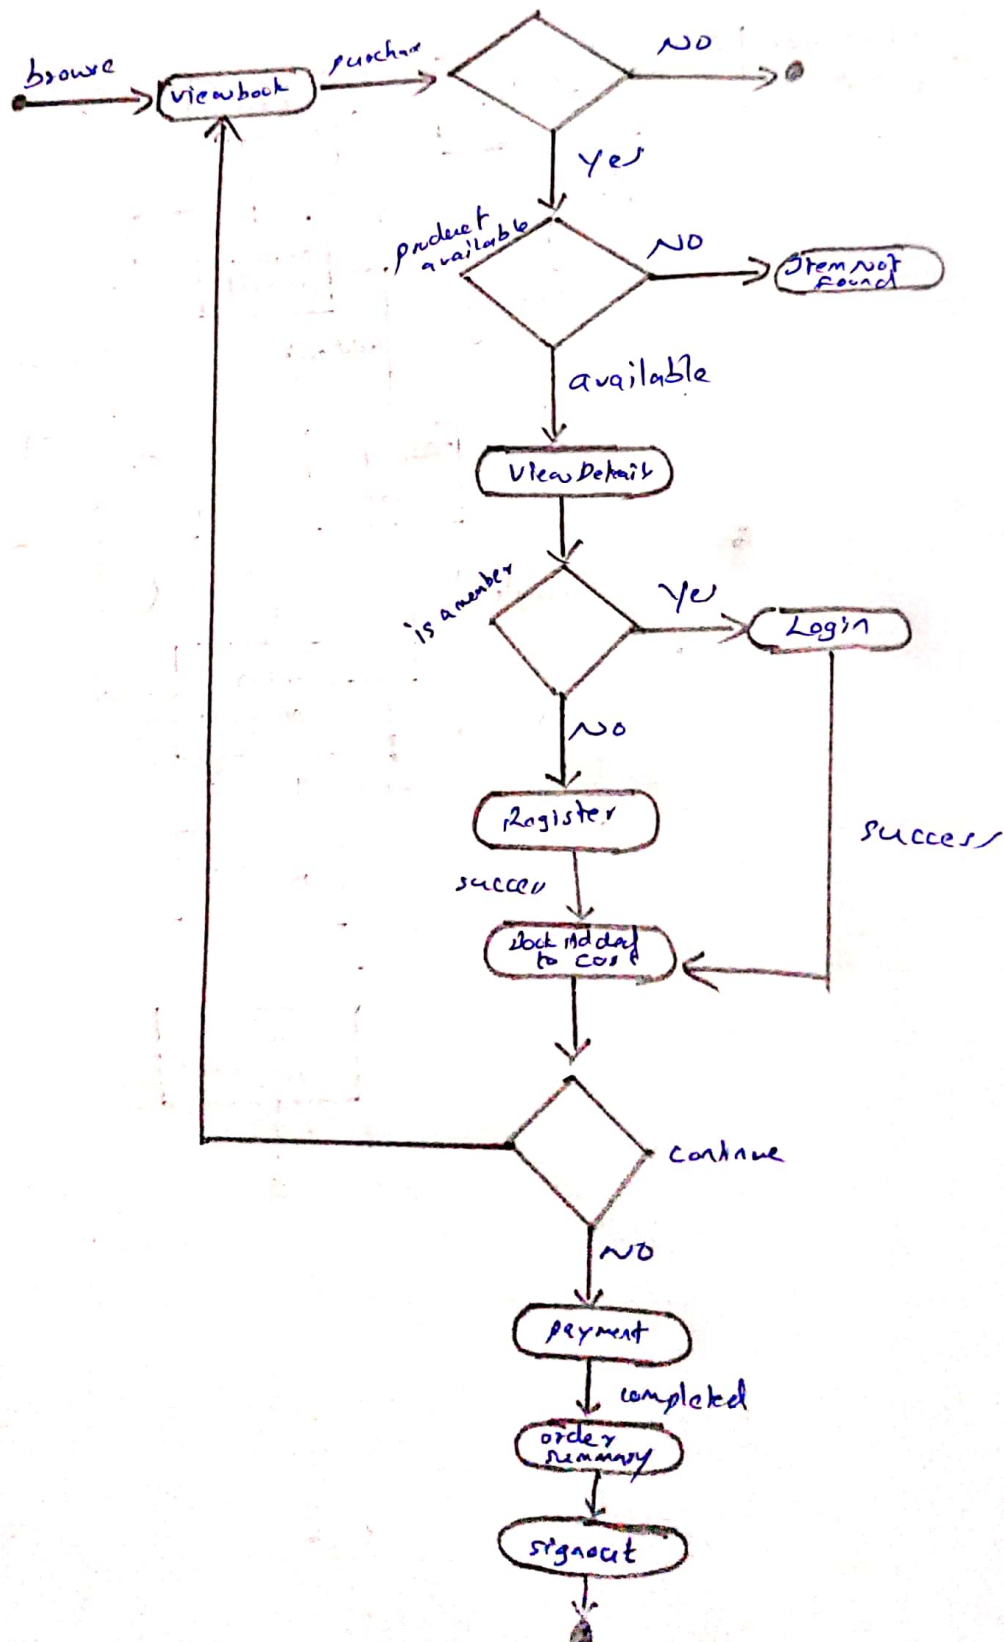 browse
viewbook
purchase
NO
Yes
product
available
NO
Item Not
Found
available
View Details
is a member
Yes
Login
NO
Register
success
success
Book Added
to
continue
NO
payment
completed
order
summary
signout